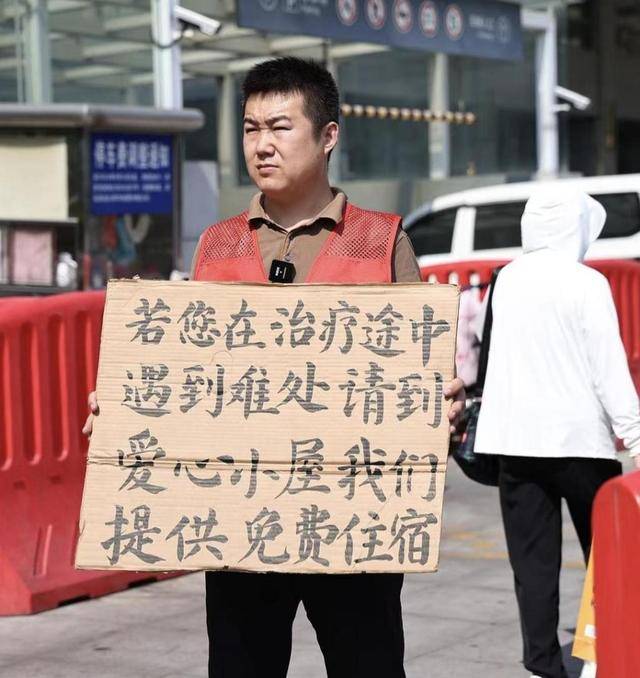 停车费调整通知
若您在治疗途中
遇到难处请到
爱心小屋我们
提供免费住宿